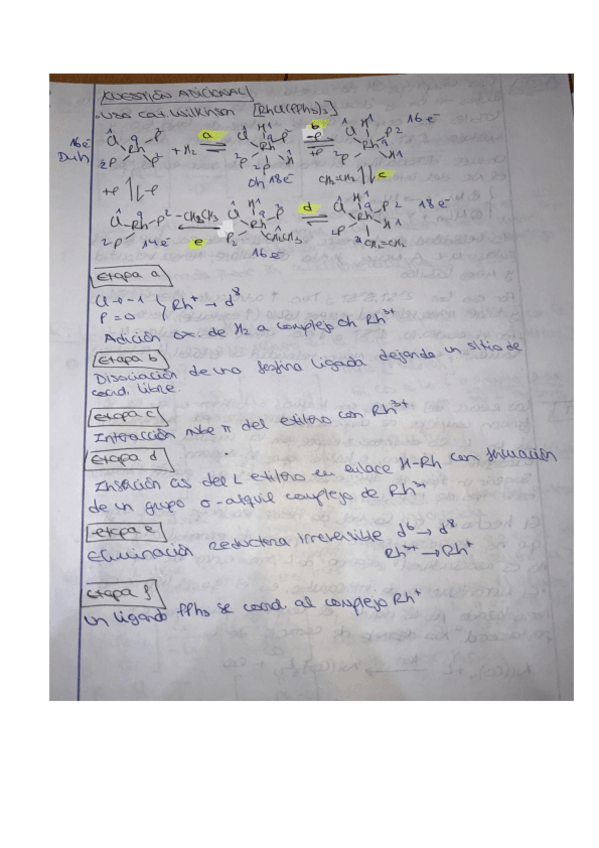 CUESTIÓN ADICIONAL
· USO cat. Wilkinson [RhCl(PPh3)3]
16e- Cl Rh P + H2 a Cl H Rh P b -P +P Cl H Rh P 16e-
D4h
Oh 18e-
+P -P CH2=CH2 c
Cl Rh P -CH3CH3 Cl H Rh P d Cl H Rh P 18e-
2P 14e- e P2 CH2CH3 CH2=CH2
16e-
Etapa a
Cl → -1
P = 0 Rh+ → d8
Adición ox. de H2 a complejo Oh Rh3+
Etapa b
Disociación de una fosfina ligada dejando un sitio de
coord. libre.
Etapa c
Interacción nube π del etileno con Rh3+
Etapa d
Inserción cis del L etileno en enlace H-Rh con formación
de un grupo σ-alquil complejo de Rh3+
Etapa e
Eliminación reductora irreversible d6 → d8
Rh3+ → Rh+
Etapa f
Un ligando PPh3 se coord. al complejo Rh+